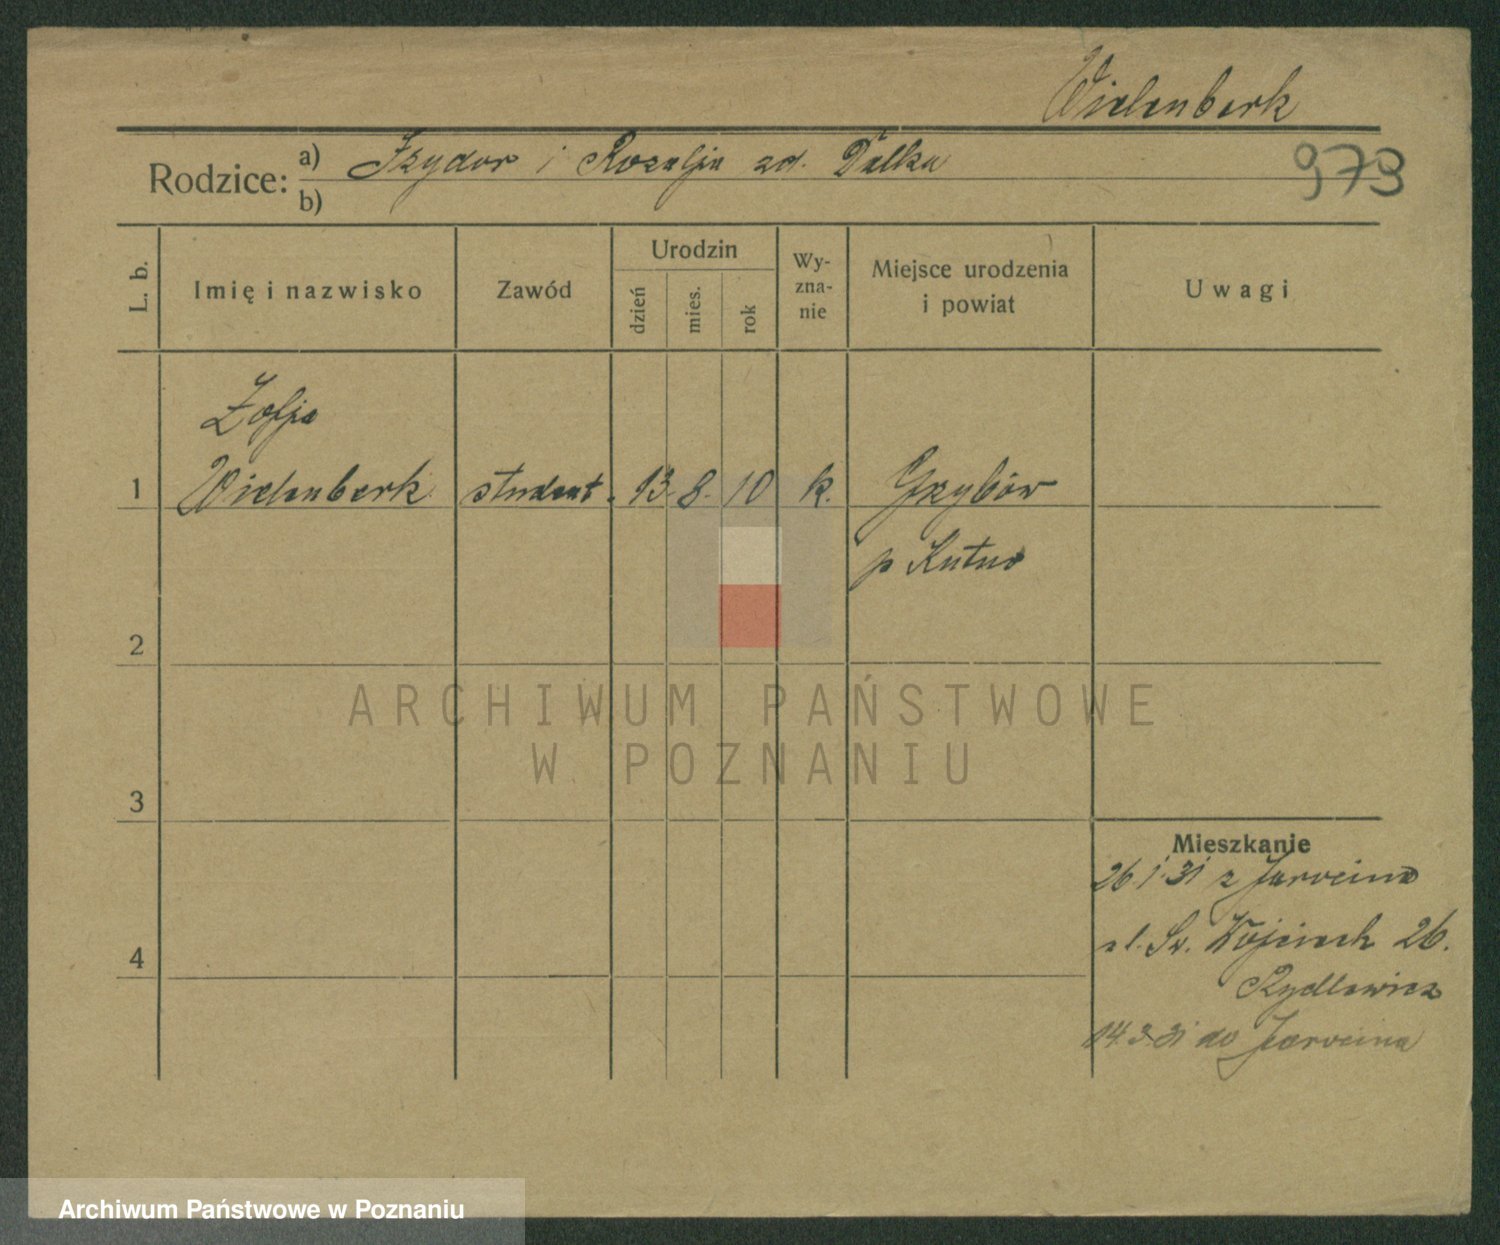 Wielenberk
Rodzice: a) Izydor i Rozalja zd. Dalka
b)
973
L. b.
Imię i nazwisko
Zawód
Urodzin
dzień
mies.
rok
Wy-
zna-
nie
Miejsce urodzenia
i powiat
Uwagi
Zofja
1 Wielenberk student. 13. 8. 10 k. Grzybów
p Kutno
2
3
4
ARCHIWUM PAŃSTWOWE
W POZNANIU
Mieszkanie
26 1. 31 z Jarocina
ul. Św. Wojciech 26.
Rydlewicz
14.3.31 do Jarocina
Archiwum Państwowe w Poznaniu